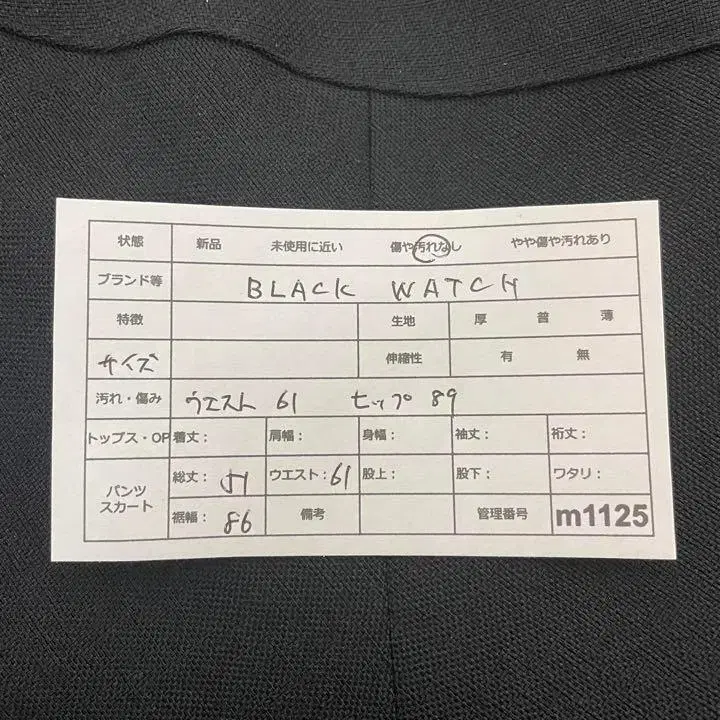 状態 新品 未使用に近い 傷や汚れなし やや傷や汚れあり
ブランド等 BLACK WATCH
特徴 生地 厚 普 薄
サイズ 伸縮性 有 無
汚れ・傷み ウエスト 61 ヒップ 89
トップス・OP 着丈： 肩幅： 身幅： 袖丈： 裄丈：
パンツ スカート 総丈：51 ウエスト：61 股上： 股下： ワタリ：
裾幅：86 備考 管理番号 m1125